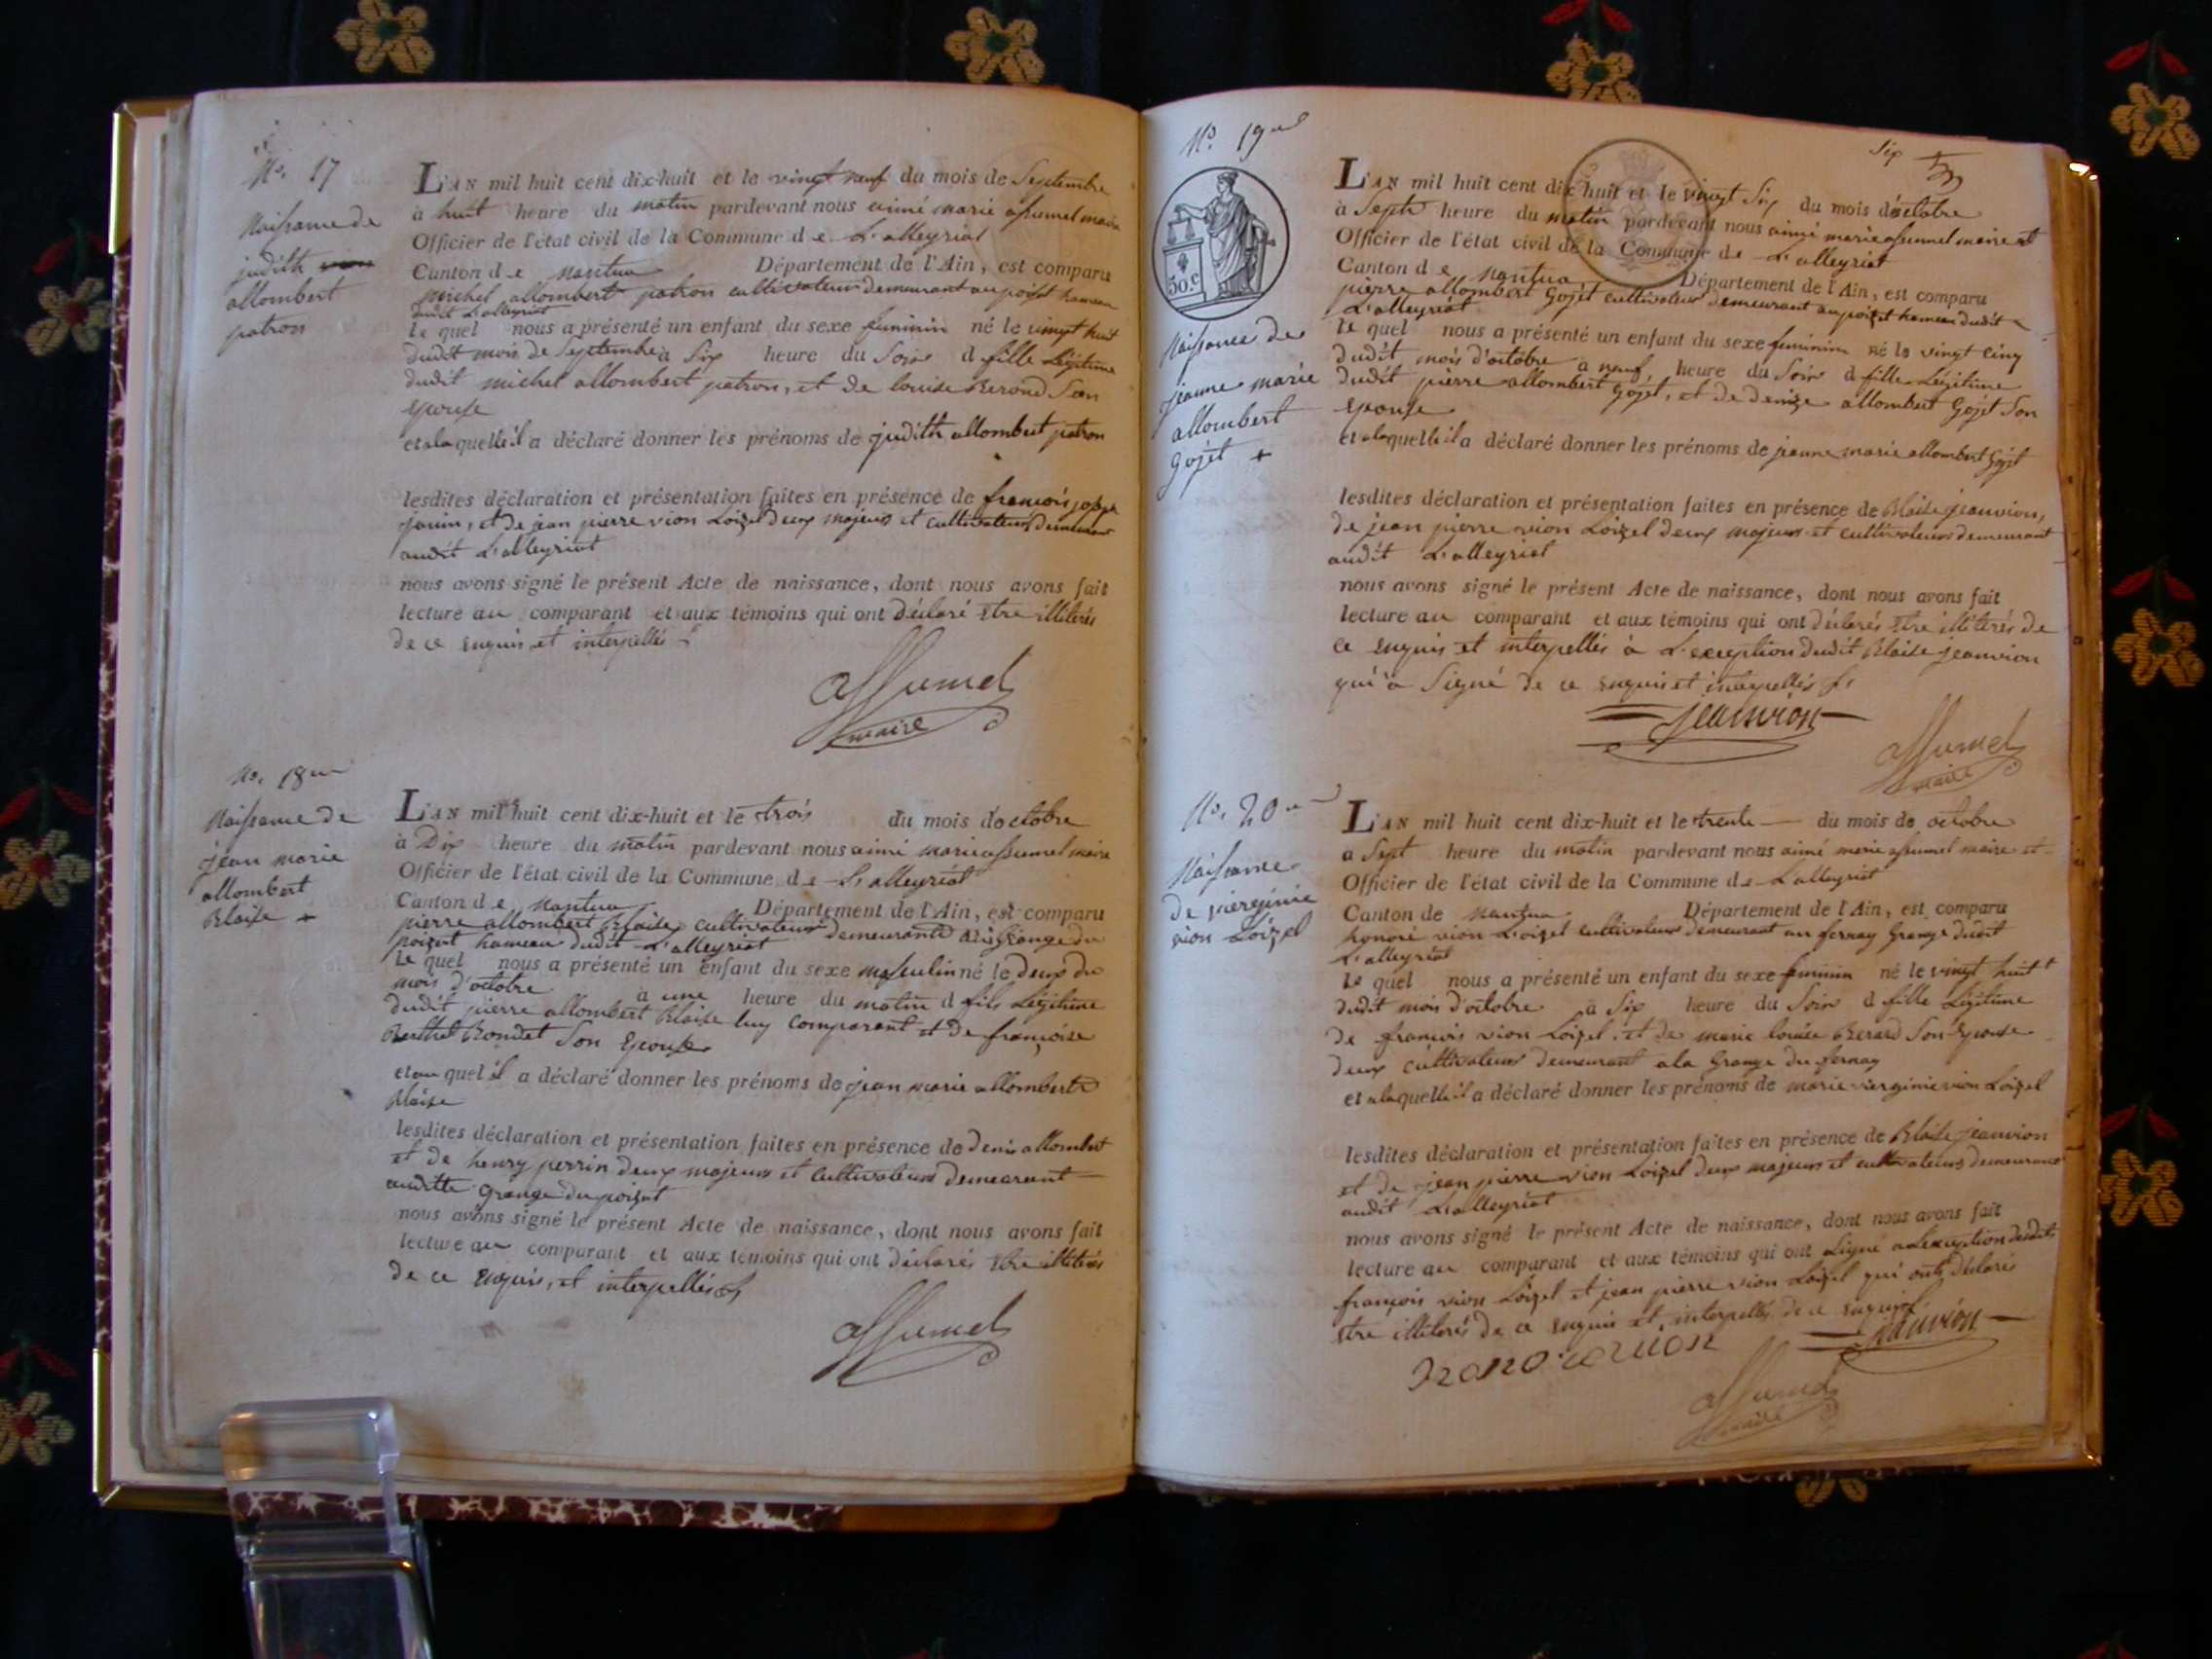 No. 17
Naissance de
judith
allombert
patron
L'AN mil huit cent dix-huit et le vingt neuf du mois de Septembre
à huit heure du matin pardevant nous aimé marie assumel maire
Officier de l'état civil de la Commune de L'alleyriat
Canton de Nantua Département de l'Ain, est comparu
michel allombert patron cultivateur demeurant au poizat hameau
dudit L'alleyriat
le quel nous a présenté un enfant du sexe feminin né le vingt huit
dudit mois de Septembre à Six heure du Soir d fille Légitime
dudit michel allombert patron, et de louise Berond Son
Epouse
et a laquelle il a déclaré donner les prénoms de judith allombert patron
lesdites déclaration et présentation faites en présence de françois
janin, et de jean pierre vion Loizel deux majeurs et cultivateurs demeurant
audit L'alleyriat
nous avons signé le présent Acte de naissance, dont nous avons fait
lecture au comparant et aux témoins qui ont déclaré Etre illiterés
de ce enquis et interpellés
assumel
maire
No. 18
Naissance de
jean marie
allombert
Blaise +
L'AN mil huit cent dix-huit et le trois du mois d'octobre
à Dix heure du matin pardevant nous aimé marie assumel maire
Officier de l'état civil de la Commune de L'alleyriat
Canton de Nantua Département de l'Ain, est comparu
pierre allombert Blaise cultivateur demeurant aux Grange du
poizat hameau dudit L'alleyriat
le quel nous a présenté un enfant du sexe masculin né le deux du
mois d'octobre à une heure du matin d fils Légitime
dudit pierre allombert Blaise luy comparant et de françoise
Berthet Bondet Son Epouse
et au quel il a déclaré donner les prénoms de jean marie allombert
Blaise
lesdites déclaration et présentation faites en présence de denis allombert
et de henry perrin deux majeurs et cultivateurs demeurant
audite Grange du poizat
nous avons signé le présent Acte de naissance, dont nous avons fait
lecture au comparant et aux témoins qui ont déclarés Etre illiterés
de ce enquis, et interpellés
assumel
No. 19
50.c
Naissance de
jeanne marie
allombert
Gojet +
Six
L'AN mil huit cent dix huit et le vingt Six du mois d'octobre
à Sept heure du matin pardevant nous aimé marie assumel maire et
Officier de l'état civil de la Commune de L'alleyriat
Canton de Nantua Département de l'Ain, est comparu
pierre allombert Gojet cultivateur demeurant au poizat hameau dudit
L'alleyriat
le quel nous a présenté un enfant du sexe feminin né le vingt cinq
dudit mois d'octobre à neuf heure du Soir d fille Légitime
dudit pierre allombert Gojet, et de denize allombert Gojet Son
Epouse
et a laquelle il a déclaré donner les prénoms de jeanne marie allombert Gojet
lesdites déclaration et présentation faites en présence de Blaise jeanvion,
de jean pierre vion Loizel deux majeurs et cultivateurs demeurant
audit L'alleyriat
nous avons signé le présent Acte de naissance, dont nous avons fait
lecture au comparant et aux témoins qui ont déclarés Etre illiterés de
ce enquis et interpellés à L'exception dudit Blaise jeanvion
qui a Signé de ce enquis et interpellés
jeanvion
assumel
maire
No. 20
Naissance
de viergine
vion Loizel
L'AN mil huit cent dix-huit et le trente du mois de octobre
à Sept heure du matin pardevant nous aimé marie assumel maire et
Officier de l'état civil de la Commune de L'alleyriat
Canton de Nantua Département de l'Ain, est comparu
honoré vion Loizel cultivateur demeurant au fernay Grange dudit
L'alleyriat
le quel nous a présenté un enfant du sexe feminin né le vingt huit
dudit mois d'octobre à Six heure du Soir d fille Légitime
de françois vion Loizel, et de marie louise Berard Son Epouse
deux cultivateurs demeurant a la Grange du fernay
et a laquelle il a déclaré donner les prénoms de marie vierginie vion Loizel
lesdites déclaration et présentation faites en présence de Blaise jeanvion
et de jean pierre vion Loizel deux majeurs et cultivateurs demeurant
audit L'alleyriat
nous avons signé le présent Acte de naissance, dont nous avons fait
lecture au comparant et aux témoins qui ont signé a L'exception desdits
françois vion Loizel et jean pierre vion Loizel qui ont déclarés
Etre illiterés de ce enquis et interpellés de ce enquis
jeanvion
assumel
maire